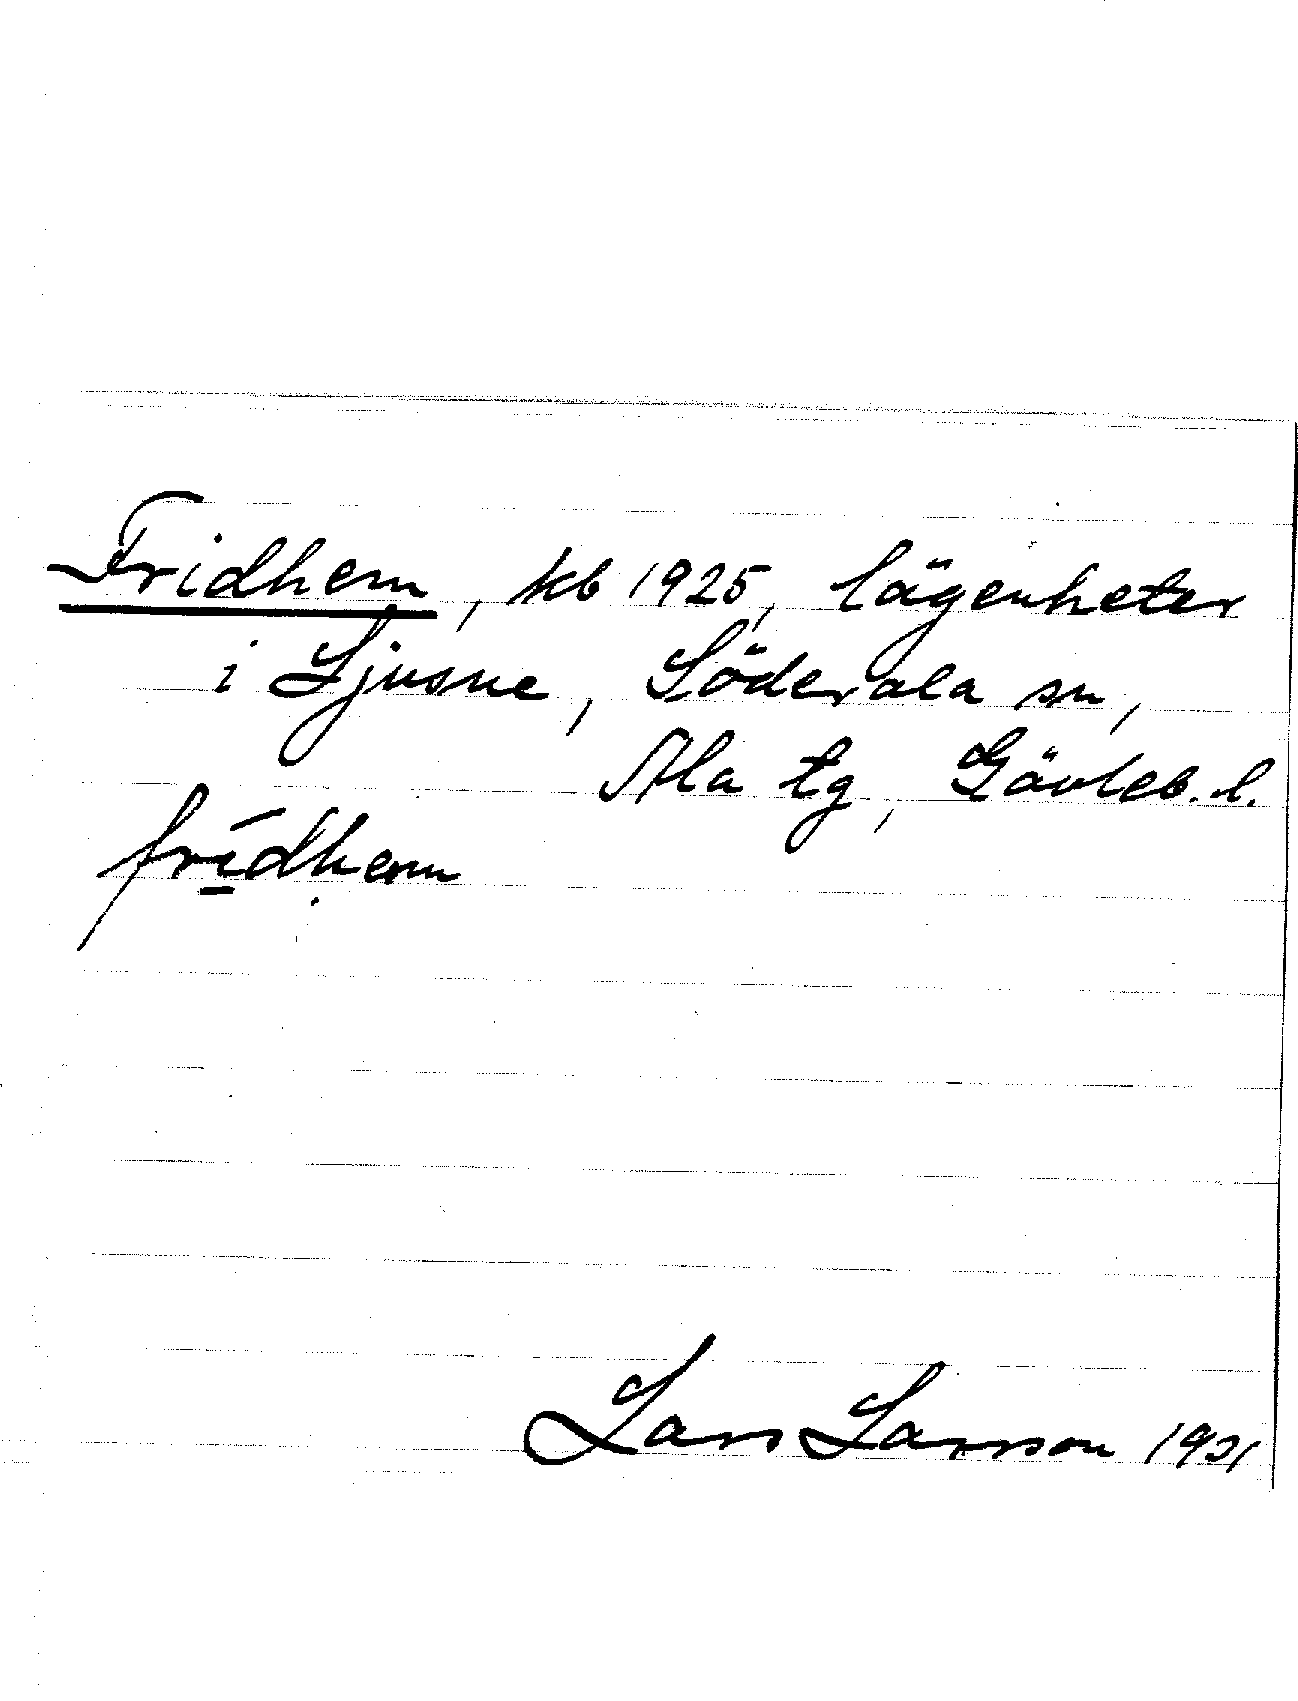 Fridhem, kb 1925, lägenheter
i Ljusne, Söderala sn,
Ala tg, Gävleb. l.
fridhem
Lars Larsson 1921